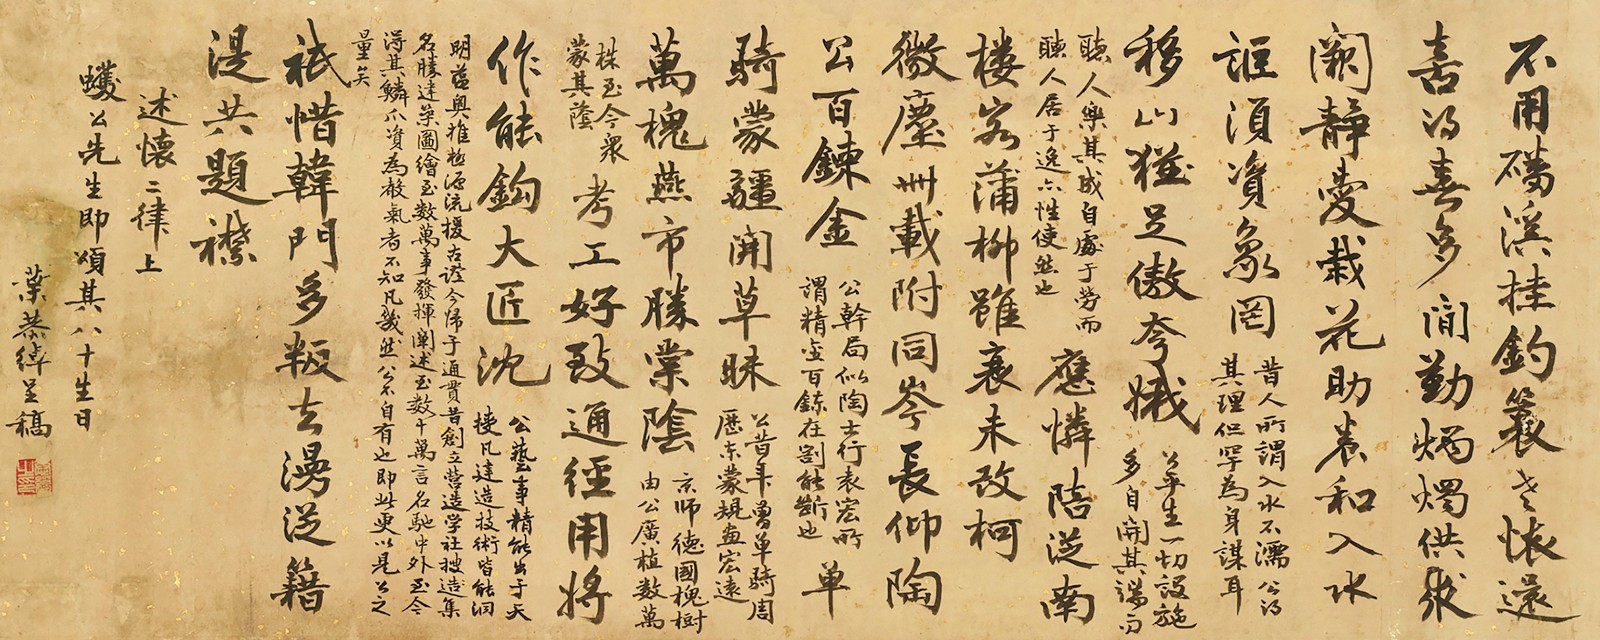 不用磻溪挂釣簑老懷還
喜得春多閒勤燭供求
闕靜愛栽花助養和入水
詎須資象罔
昔人所謂入水不濡公得
其理但罕為身謀耳
移山猶足傲夸娥
公畢生一切設施
多自開其端而
聽人樂其成自處于勞而
聽人居于逸亦性使然也
應憐陪從南
樓客蒲柳雖衰未改柯
微塵卅載附同岑長仰陶
公百鍊金
公幹局似陶士行袁宏所
謂精金百鍊在割能斷也
單
騎蒙疆開草昧
公昔年曾單騎周
歷東蒙規畫宏遠
萬槐燕市勝棠陰
京師德國槐樹
由公廣植數萬
株至今眾
蒙其蔭
考工好致通經用將
作能鈎大匠沈
公藝事精能出于天
挺凡建造技術皆能洞
明蘊奧推極源流援古證今歸于通貫昔創立營造學社搜造集
名勝建築圖繪至數萬事發揮闡述至數千萬言名馳中外至今
得其鱗爪資為氣者不知凡幾然公不自有也即此更以見公之
量矣
祇惜韓門多叛去漫從籍
湜共題襟
述懷二律上
蠖公先生即頌其八十生日
葉恭綽呈稿